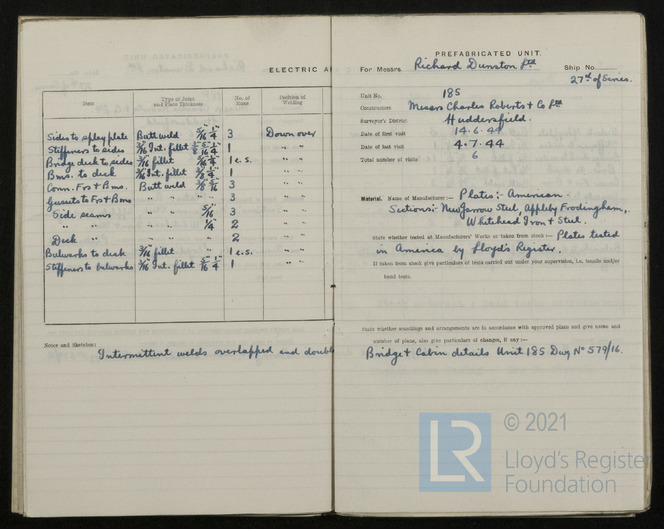 ELECTRIC A
Item
Type of Joint and Plate Thickness
No. of Runs
Position of Welding
Sides to splay plate Butt weld 5/16" 1/4" 3 Downover
Stiffeners to sides 3/16 Int. fillet 1 " "
Bridge deck to sides 3/16 fillet 5/16 1/4 1 c.s. " "
Bms. to deck 3/16 Int. fillet 1 " "
Conn. Frs & Bms. Butt weld 3 " "
Gussets to Frs & Bms " " 3 " "
Side seams " " 5/16 3 " "
" " " " 1/4 2 " "
Deck " " " 2 " "
Bulworks to deck 3/16 fillet " 1 c.s. " "
Stiffeners to bulworks 3/16 Int. fillet 5/16 1/4 1 " "
Notes and Sketches:
Intermittent welds overlapped and double
PREFABRICATED UNIT.
For Messrs. Richard Dunston Ltd Ship No.
27th of Series.
Unit No. 185
Constructors Messrs Charles Roberts & Co Ltd
Surveyor's District Huddersfield.
Date of first visit 14.6.44
Date of last visit 4.7.44
Total number of visits 6
Material. Name of Manufacturer:— Plates:- American.
Sections:- New Jarrow Steel, Appleby Frodingham,
Whitehead Iron & Steel.
State whether tested at Manufacturers' Works or taken from stock:— Plates tested
in America by Lloyd's Register.
If taken from stock give particulars of tests carried out under your supervision, i.e. tensile and/or
bend tests.
State whether scantlings and arrangements are in accordance with approved plans and give name and
number of plans, also give particulars of changes, if any:—
Bridge & Cabin details Unit 185 Dwg No 579/16.
LR
© 2021
Lloyd's Register
Foundation